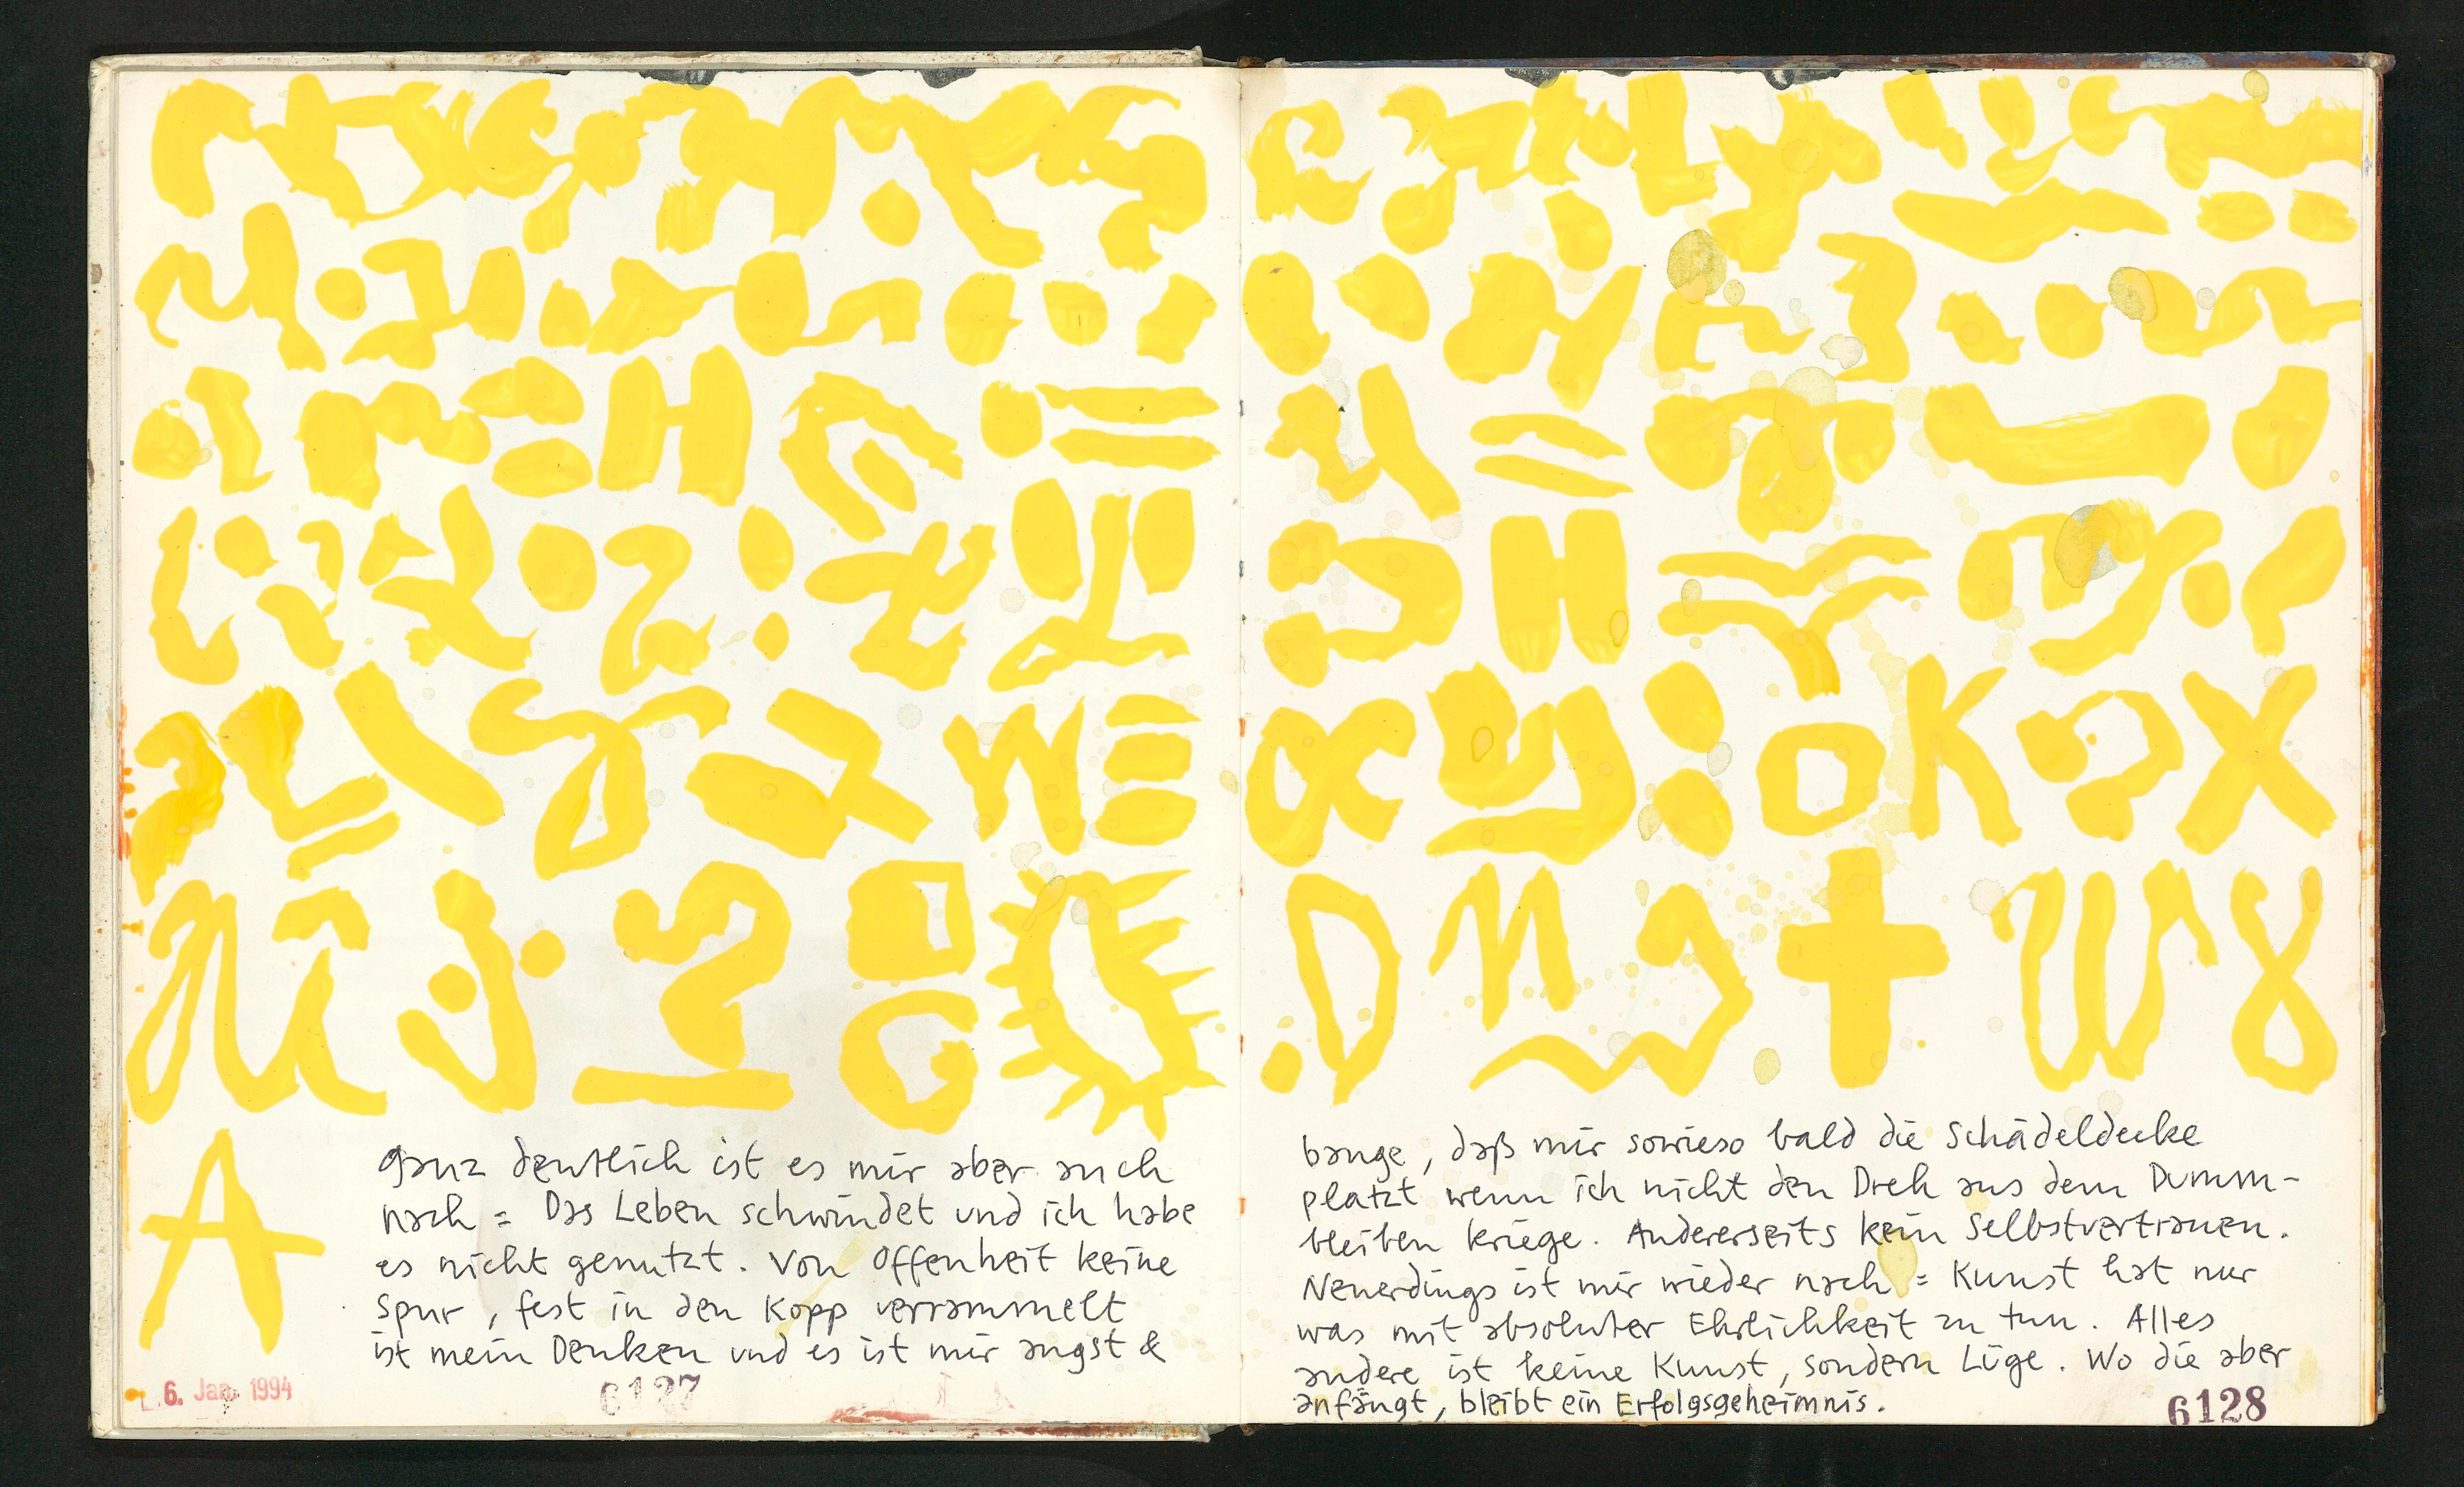 A
ganz deutlich ist es mir aber auch
nach = Das Leben schwindet und ich habe
es nicht genutzt. Von Offenheit keine
Spur, fest in den Kopp verrammelt
ist mein Denken und es ist mir angst &
6. Jan. 1994
6127
bange, daß mir sowieso bald die Schädeldecke
platzt wenn ich nicht den Dreh aus dem Dumm-
bleiben kriege. Andererseits kein Selbstvertrauen.
Neuerdings ist mir wieder nach = Kunst hat nur
was mit absoluter Ehrlichkeit zu tun. Alles
andere ist keine Kunst, sondern Lüge. Wo die aber
anfängt, bleibt ein Erfolgsgeheimnis.
6128